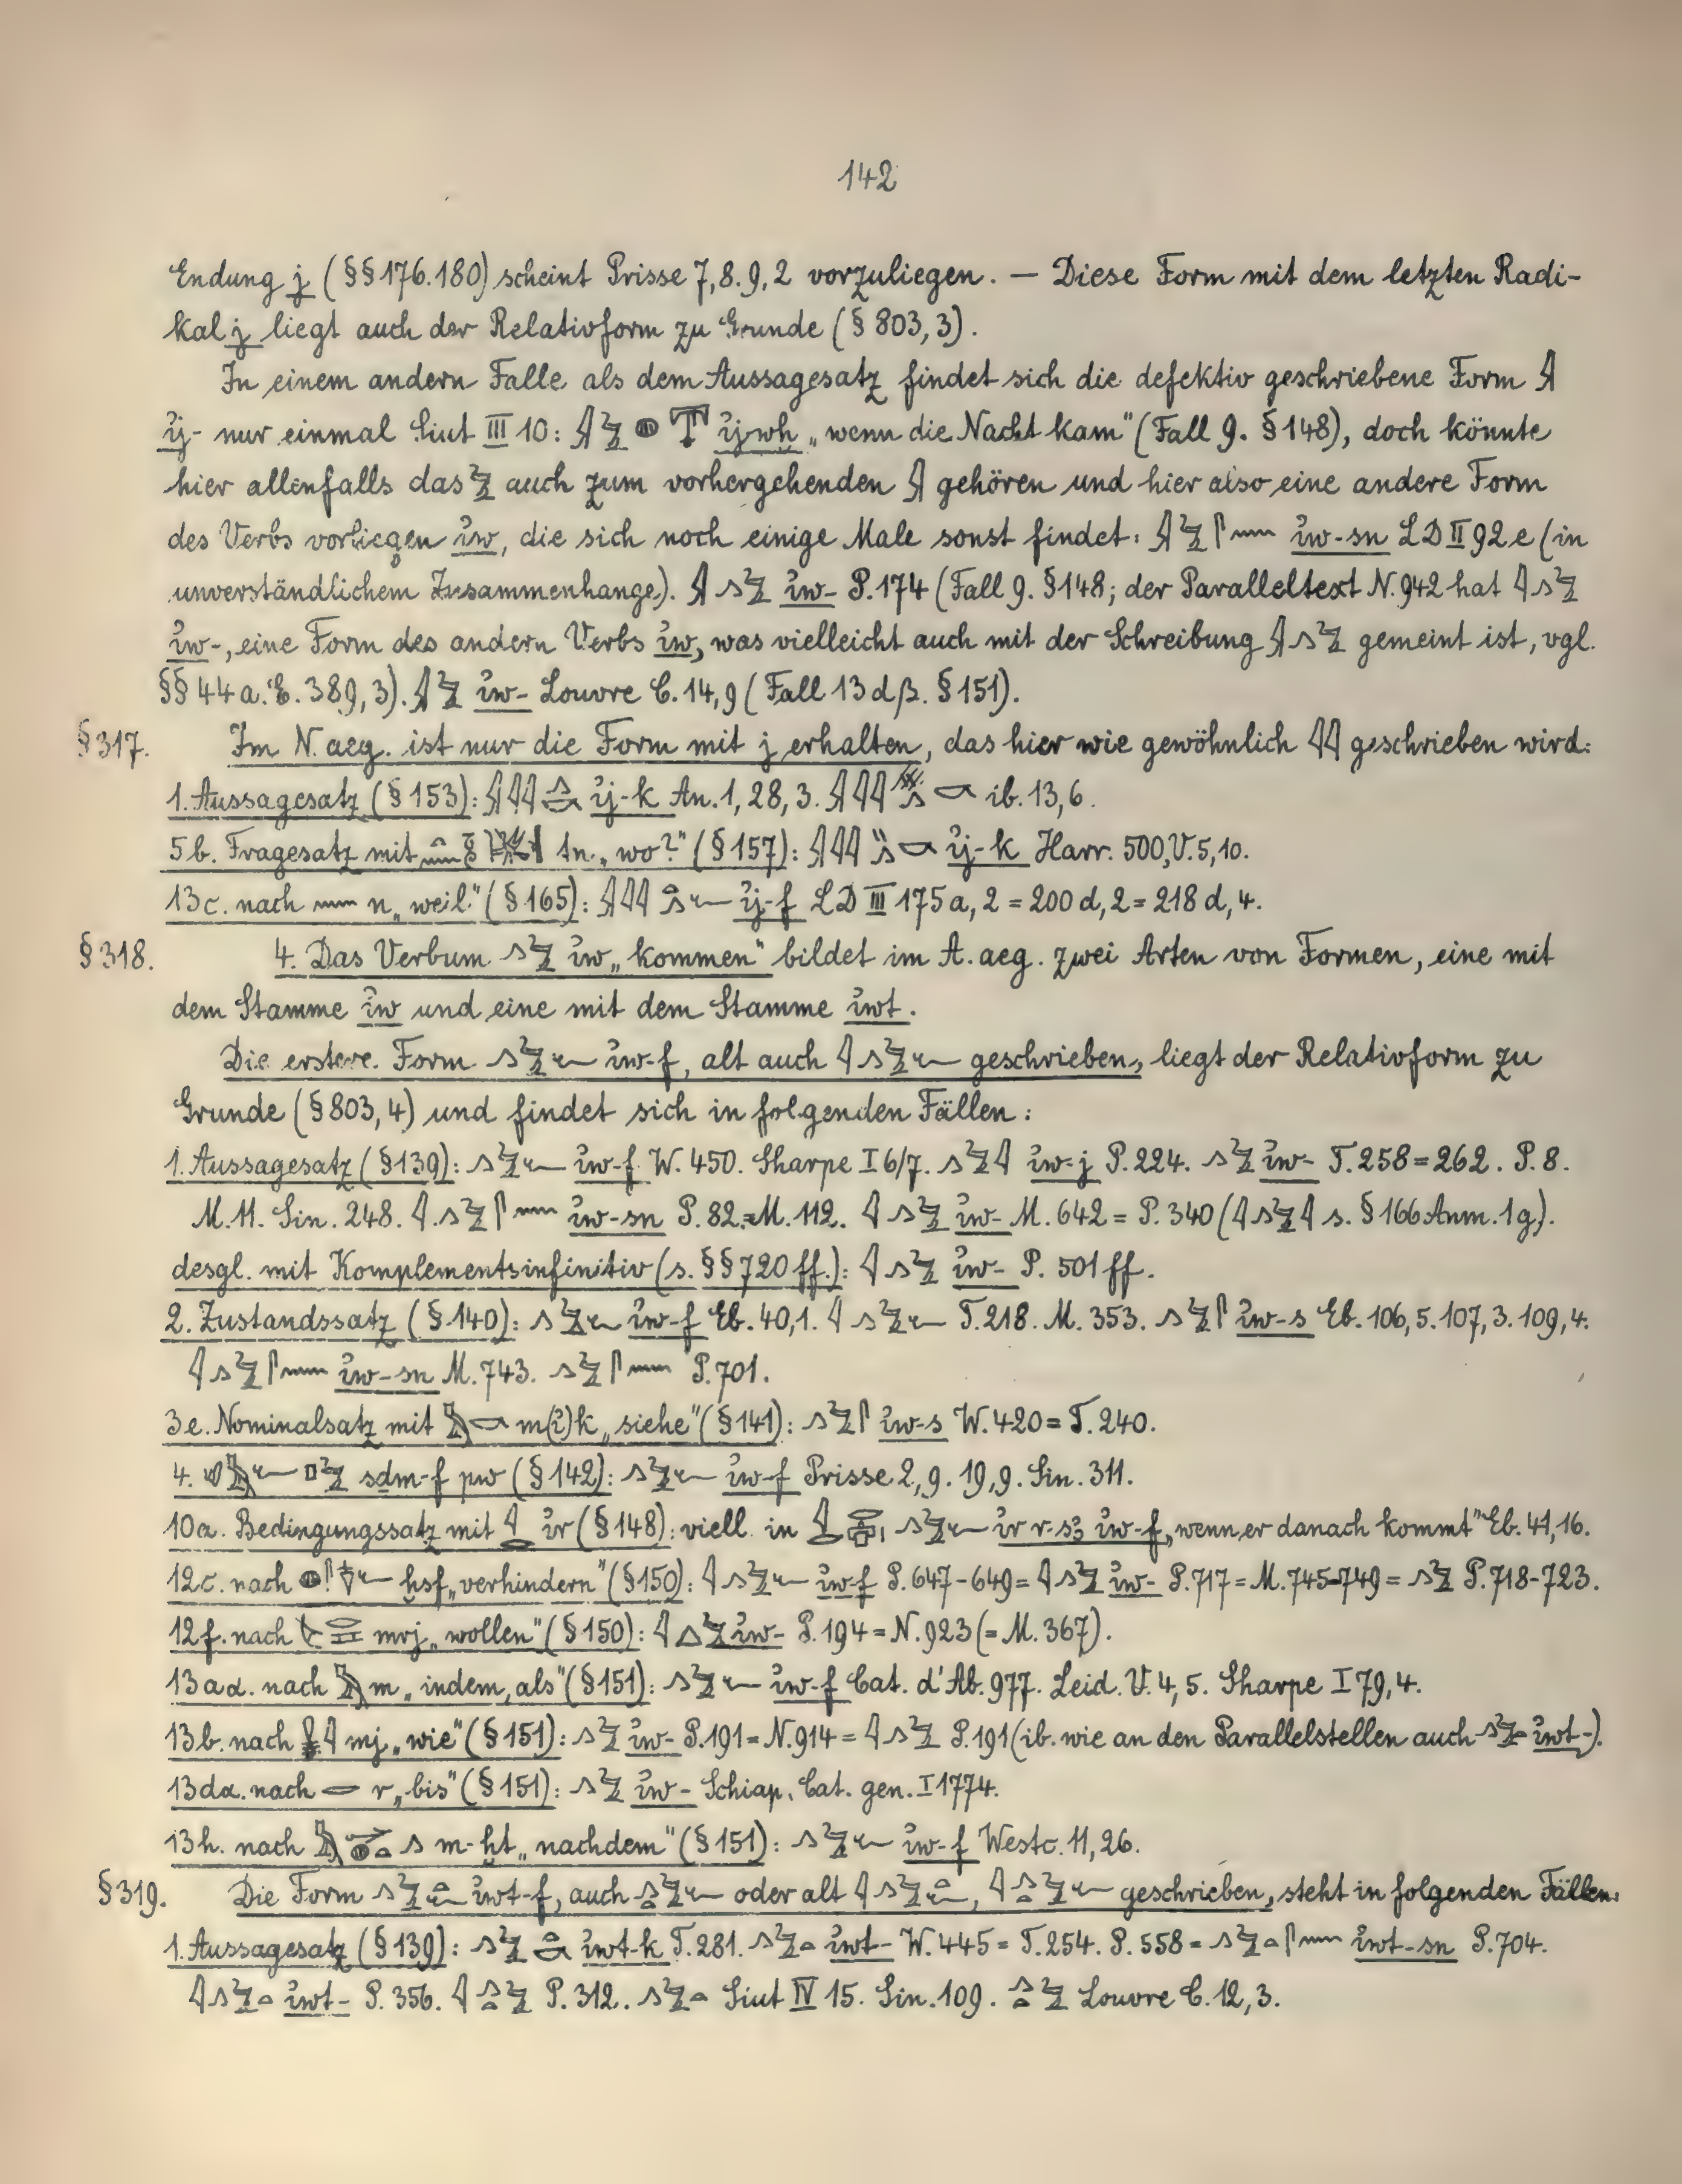 142
Endung j (§§ 176.180) scheint Prisse 7,8.9,2 vorzuliegen. — Diese Form mit dem letzten Radi-
kal j liegt auch der Relativform zu Grunde (§ 803,3).
In einem andern Falle als dem Aussagesatz findet sich die defektiv geschriebene Form
ij- nur einmal Siut III 10: ij-wḫ „wenn die Nacht kam" (Fall 9. § 148), doch könnte
hier allenfalls das auch zum vorhergehenden gehören und hier also eine andere Form
des Verbs vorliegen iw, die sich noch einige Male sonst findet: iw-sn LD II 92e (in
unverständlichem Zusammenhange). iw- P. 174 (Fall 9. § 148; der Paralleltext N. 942 hat
iw-, eine Form des andern Verbs iw, was vielleicht auch mit der Schreibung gemeint ist, vgl.
§§ 44a. 389,3). iw- Louvre C. 14,9 (Fall 13dβ. § 151).
§ 317. Im N. aeg. ist nur die Form mit j erhalten, das hier wie gewöhnlich geschrieben wird:
1. Aussagesatz (§ 153): ij-k An. 1, 28, 3. ib. 13,6.
5b. Fragesatz mit tn „wo?" (§ 157): ij-k Harr. 500, V. 5,10.
13c. nach n „weil" (§ 165): ij-f LD III 175a, 2 = 200d, 2 = 218d, 4.
§ 318. 4. Das Verbum iw „kommen" bildet im A. aeg. zwei Arten von Formen, eine mit
dem Stamme iw und eine mit dem Stamme iwt.
Die erstere Form iw-f, alt auch geschrieben, liegt der Relativform zu
Grunde (§ 803,4) und findet sich in folgenden Fällen:
1. Aussagesatz (§ 139): iw-f W. 450. Sharpe I 6/7. iw-j P. 224. iw- T. 258 = 262. P. 8.
M. 11. Sin. 248. iw-sn P. 82 = M. 112. iw- M. 642 = P. 340 ( s. § 166 Anm. 1g).
desgl. mit Komplementsinfinitiv (s. §§ 720 ff.): iw- P. 501 ff.
2. Zustandssatz (§ 140): iw-f Eb. 40,1. T. 218. M. 353. iw-s Eb. 106,5. 107,3. 109,4.
iw-sn M. 743. P. 701.
3e. Nominalsatz mit m(i)k „siehe" (§ 141): iw-s W. 420 = T. 240.
4. sḏm-f pw (§ 142): iw-f Prisse 2,9. 19,9. Sin. 311.
10a. Bedingungssatz mit ir (§ 148): viell. in ir r-s3 iw-f „wenn er danach kommt" Eb. 41,16.
12c. nach ḫsf „verhindern" (§ 150): iw-f P. 647-649 = iw- P. 717 = M. 745-749 = P. 718-723.
12f. nach mrj „wollen" (§ 150): iw- P. 194 = N. 923 (= M. 367).
13aα. nach m „indem, als" (§ 151): iw-f Cat. d'Ab. 977. Leid. V. 4,5. Sharpe I 79,4.
13b. nach mj „wie" (§ 151): iw- P. 191 = N. 914 = P. 191 (ib. wie an den Parallelstellen auch iwt-).
13dα. nach r „bis" (§ 151): iw- Schiap. Cat. gen. I 1774.
13h. nach m-ḫt „nachdem" (§ 151): iw-f Westc. 11,26.
§ 319. Die Form iwt-f, auch oder alt , geschrieben, steht in folgenden Fällen:
1. Aussagesatz (§ 139): iwt-k T. 281. iwt- W. 445 = T. 254. P. 558 = iwt-sn P. 704.
iwt- P. 356. P. 312. Siut IV 15. Sin. 109. Louvre C. 12,3.